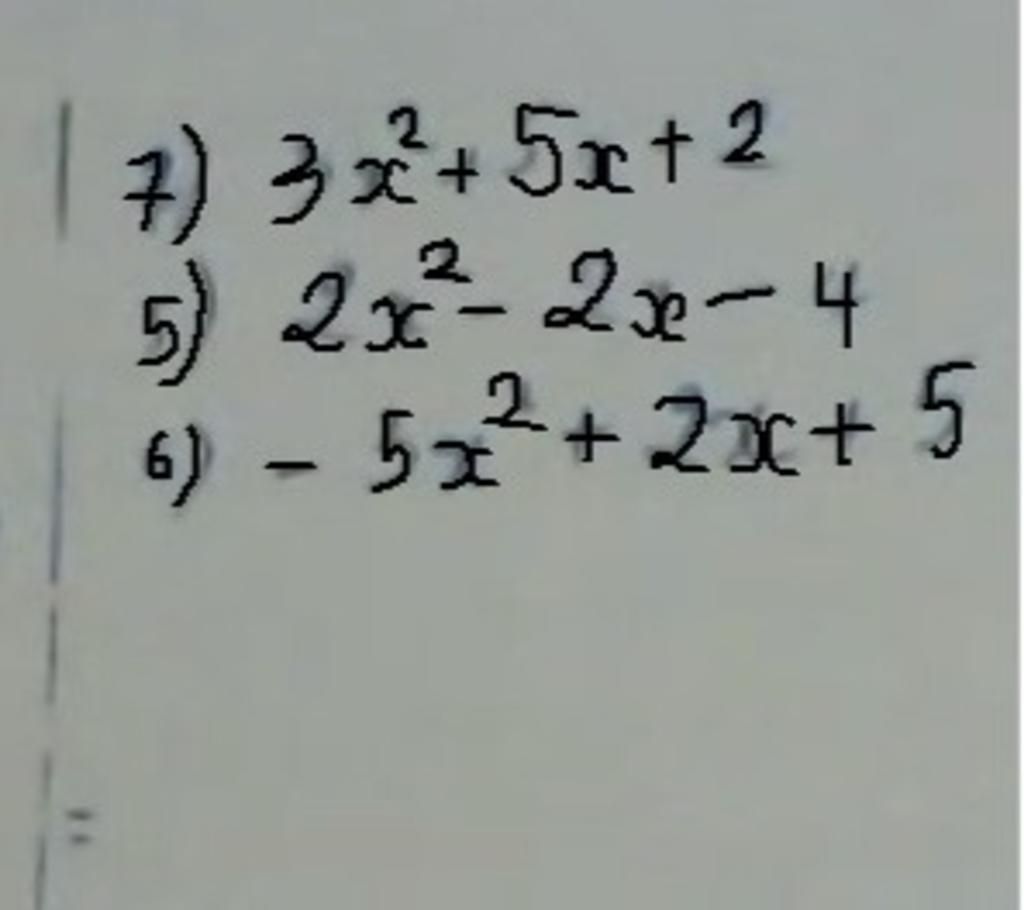 7) 3x² + 5x + 2
5) 2x² - 2x - 4
6) - 5x² + 2x + 5
=